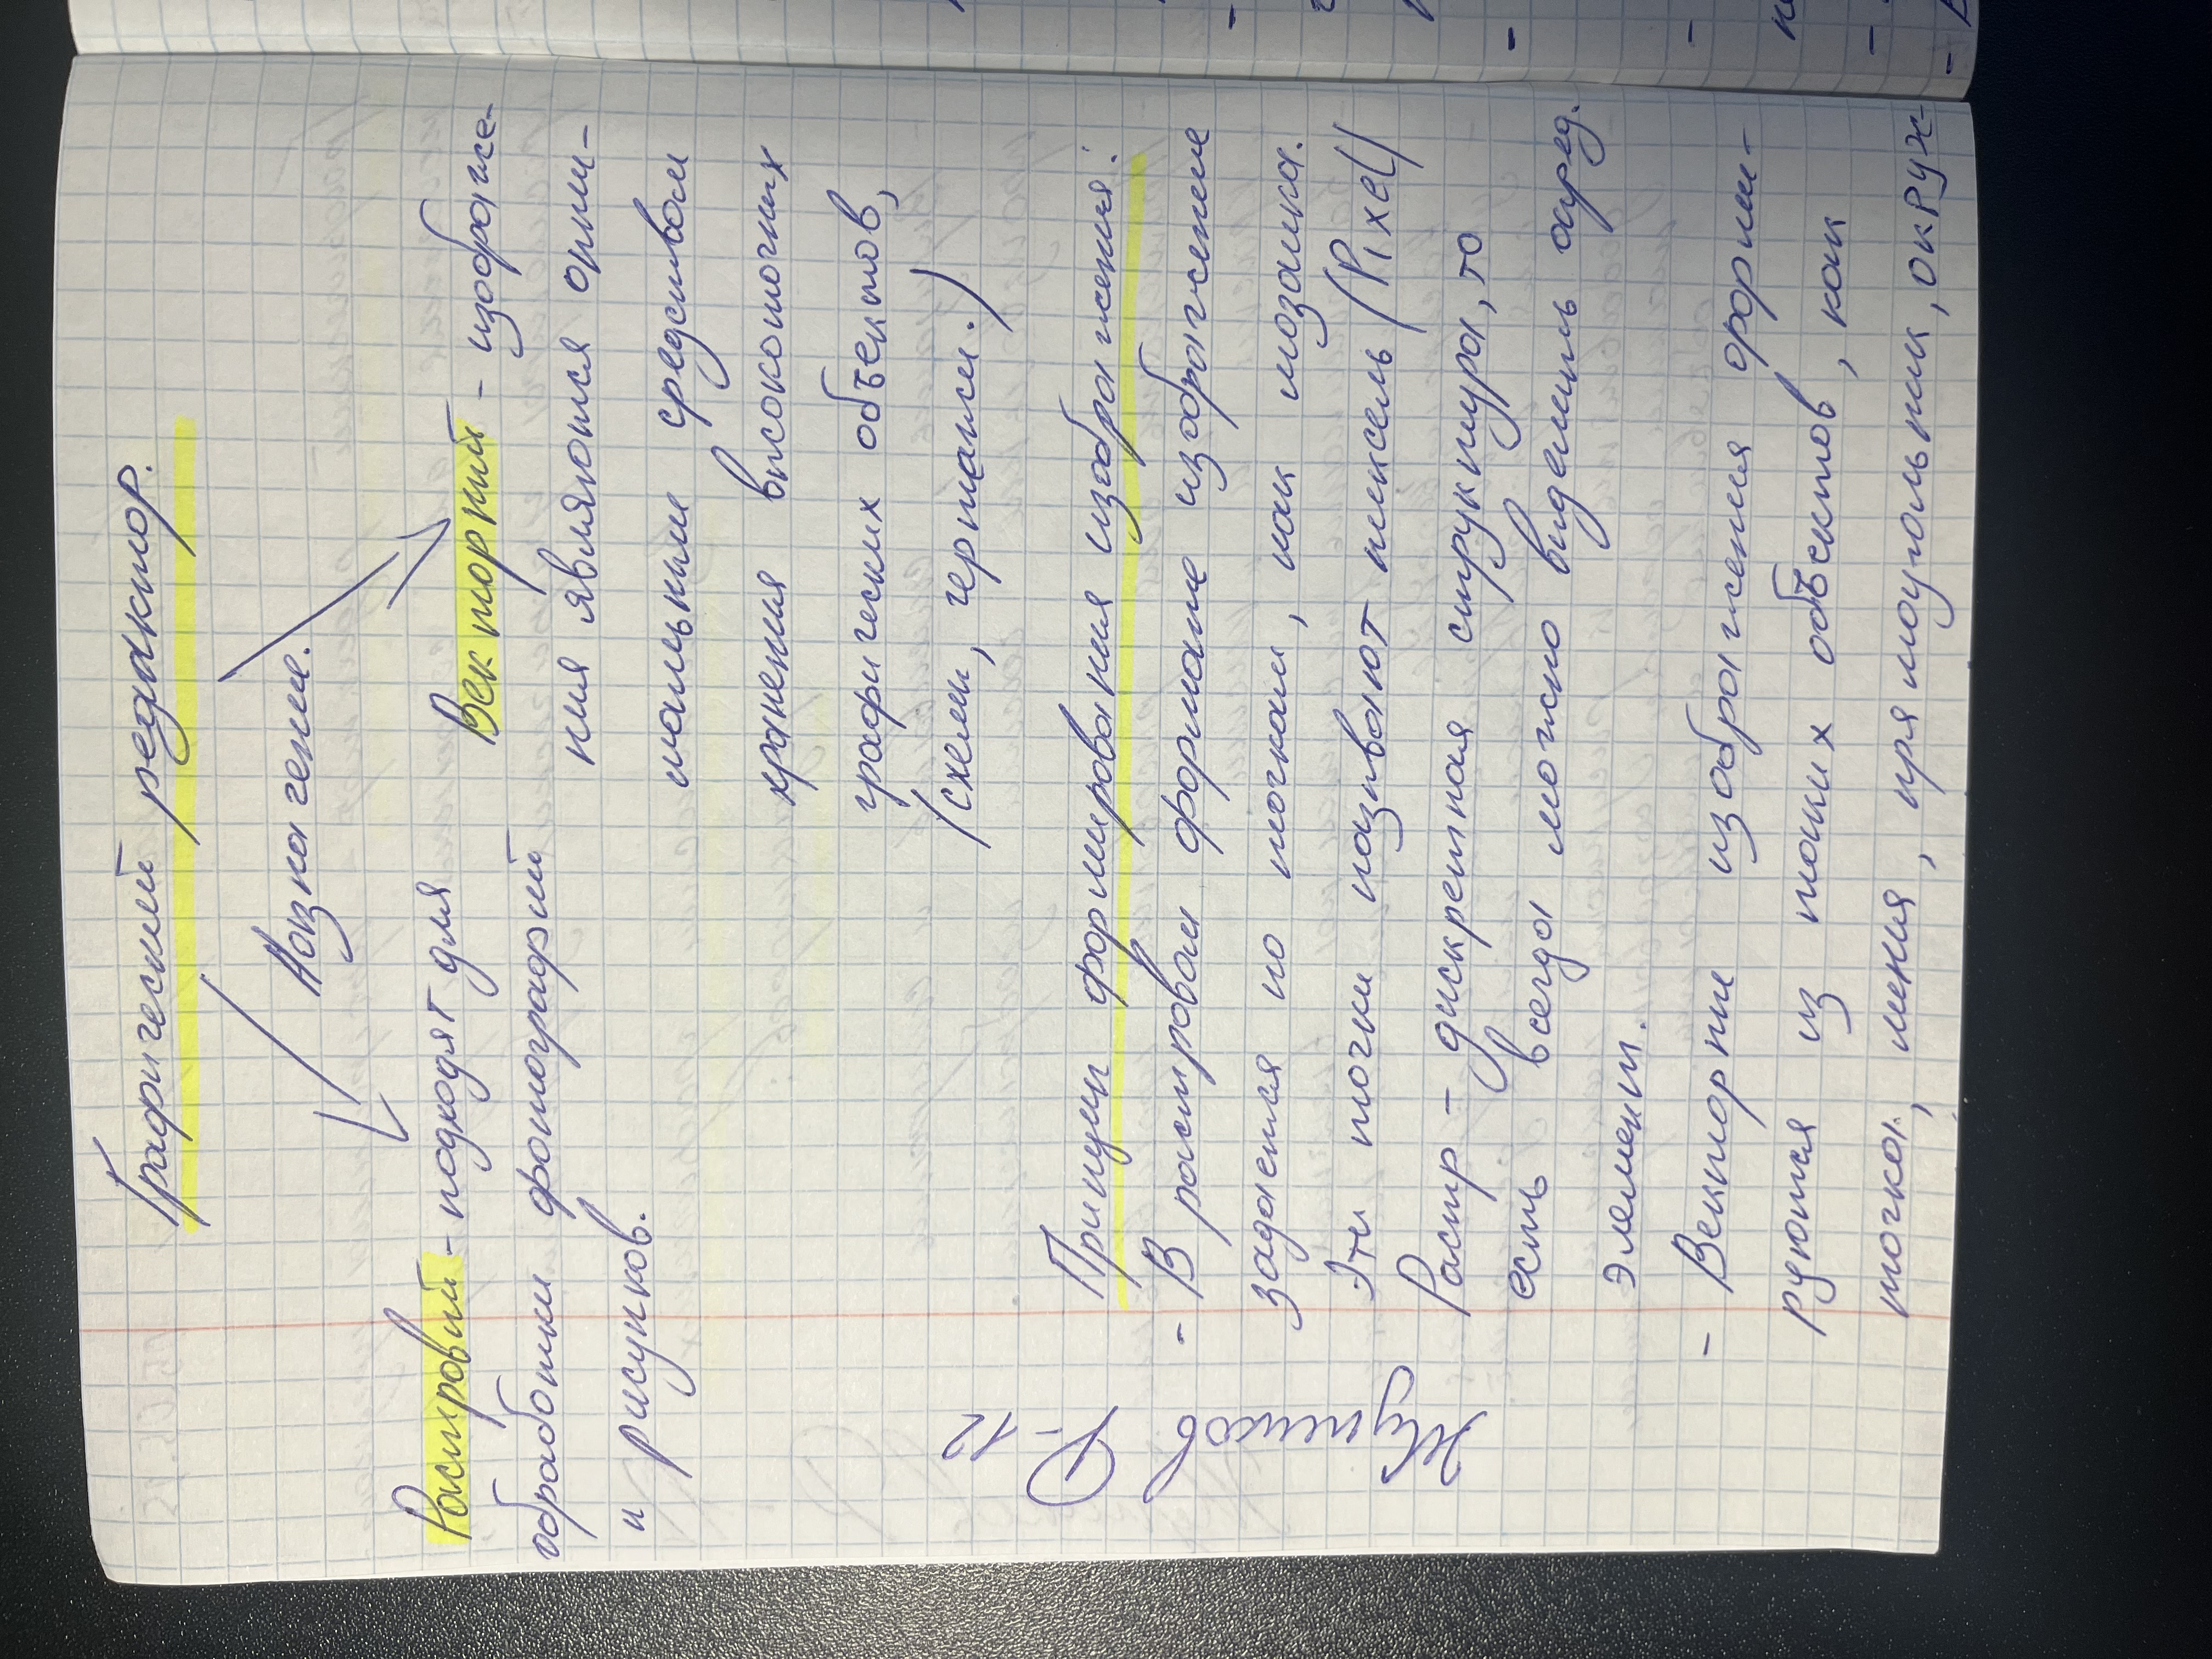 Графический редактор.
Назначение.
Растровый - подходят для
обработки фотографий
и рисунков.
Векторный - изображе-
ния являются опти-
мальным средством
хранения высокоточных
графических объектов,
(схемы, чертежи.)
Принцип формирования изображения:
- В растровом формате изображение
задается по точкам, как мозаика.
Эти точки называют пиксель /Pixel/
Растр - дискретная структура, то
есть всегда можно выделить опред.
элемент.
- Векторные изображения форми-
руются из таких объектов, как
точка, линия, прямоугольник, окруж-
12